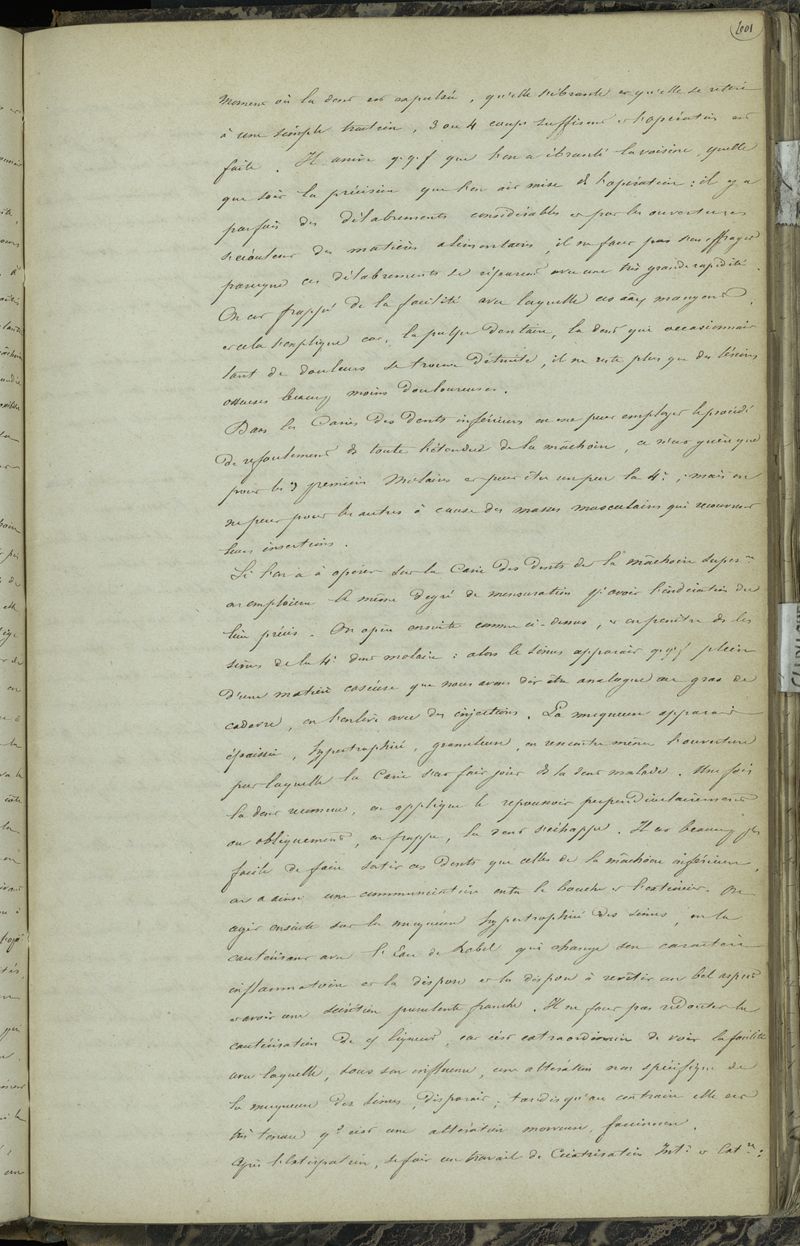 601
moment où la dent est expulsée, qu'elle s'ébranle et qu'elle se retire
à une simple traction, 3 ou 4 coups suffisent et l'opération est
faite. Il arrive qq.f que l'on a ébranlé la voisine, quelle
que soit la précision que l'on ait mise ds l'opération : il y a
parfois des délabrements considérables et par les ouvertures
s'écoulent des matières alimentaires, il ne faut pas s'en effrayer
parceque ces délabrements se réparent avec une très grande rapidité.
On est frappé de la facilité avec laquelle ces aaux mangent,
et cela s'explique car, la pulpe dentaire, la dent qui occasionnait
tant de douleurs se trouve détruite, il ne reste plus que des lésions
osseuses beaucp moins douloureuses.
Dans les Caries des Dents inférieures on ne peut employer le procédé
de refoulement ds toute l'étendue de la mâchoire, ce n'est guère que
pour les 3 premières Molaires et peut être un peu la 4e ; mais on
ne peut pour les autres à cause des masses musculaires qui recouvrent
leurs insertions.
Si l'on a à opérer sur la Carie des Dents de la mâchoire supere
on emploiera le même degré de mensuration pr avoir l'indication du
lieu précis. On opère ensuite comme ci-dessus, et on pénètre ds les
sinus de la 4e dent molaire : alors le sinus apparaît qq.f plein
d'une matière caséuse que nous avons dit être analogue au gras de
cadavre, on l'enlève avec des injections. La muqueuse apparaît
épaissie, hypertrophiée, granuleuse, on rencontre même l'ouverture
par laquelle la Carie s'est fait jour ds la dent malade. Une fois
la dent reconnue, on applique le repoussoir perpendiculairement
ou obliquement, on frappe, la dent s'échappe. Il est beaucp pls
facile de faire sortir ces Dents que celles de la mâchoire inférieure,
on a ainsi une communication entre la bouche et l'extérieur. On
agit ensuite sur la muqueuse hypertrophiée des sinus, on la
cautérisant avec l'Eau de Rabel qui change son caractère
inflammatoire et la dispose et la dispose à revêtir un bel aspect
et avoir une sécrétion purulente franche. Il ne faut pas redouter la
cautérisation de cj liqueur, car c'est extraordinaire de voir la facilité
avec laquelle, sous son influence, une altération non spécifique de
la muqueuse des sinus, disparaît ; tandis qu'au contraire elle est
très tenace qd c'est une altération morveuse, farcineuse.
Après l'extirpation, se fait un travail de Cicatrisation Inte et Exte :